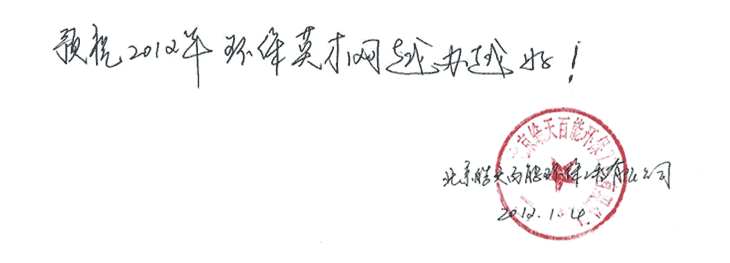 预祝2012年环保英才网越办越好！
北京皓天百能环保工程有限公司
2012.1.4.
北京皓天百能环保工程有限公司